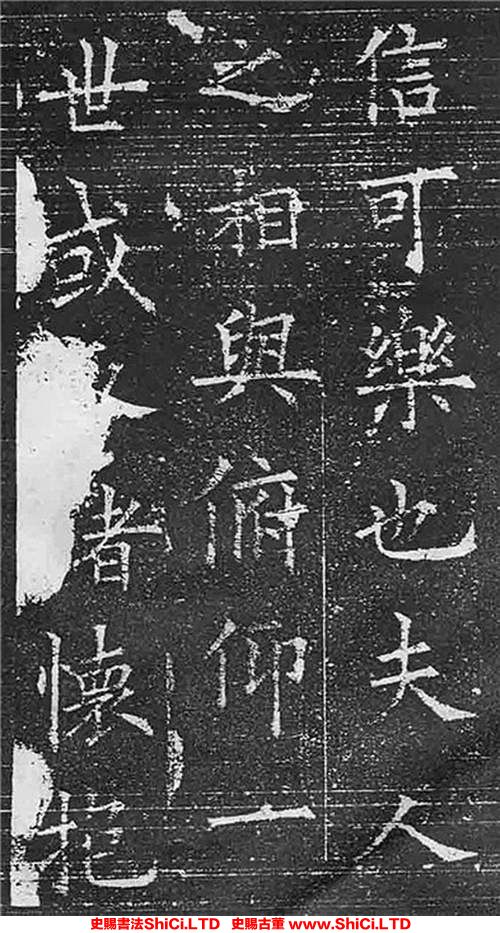 信可樂也夫人
之相與俯仰一
世或懷抱
史賜書法ShiCi.LTD 史賜古董 www.ShiCi.LTD